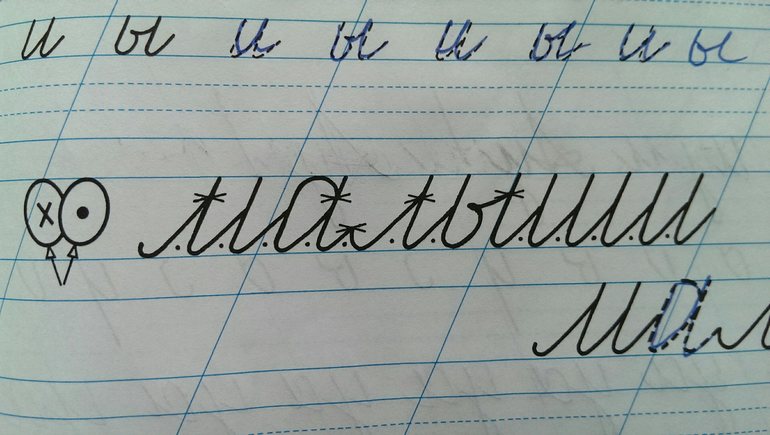 и ы и ы и ы и ы
малыши
мал